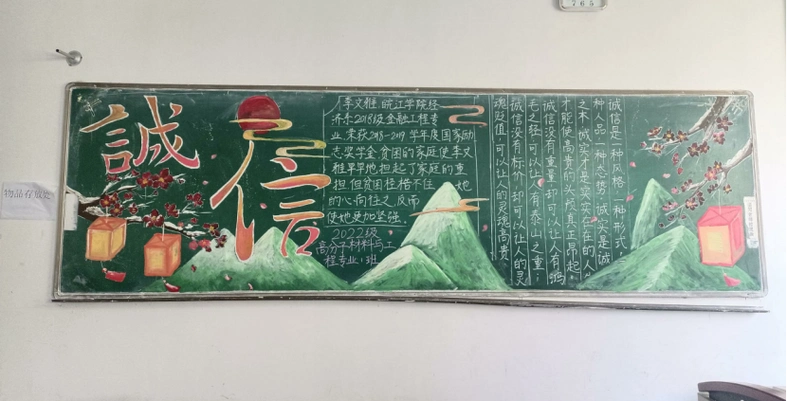 765
物品存放处
誠信
李文雅,皖江学院经
济系2018级金融工程专
业,荣获2018-2019学年度国家励
志奖学金,贫困的家庭使李文
雅早早地担起了家庭的重
担,但贫困桎梏不住 她
的心向往之,反而
使她更加坚强。
2022级
高分子材料与工
程专业1班
诚信是一种风格,一种形式,
种人品,一种态势,诚实是诚
之本,诚实才是实实在在的人
才能使高贵的头颅真正昂起。
诚信没有重量,却可以让人有鸿
毛之轻,可以让人有泰山之重;
诚信没有标价,却可以让人的灵
魂贬值,可以让人的灵魂高贵。